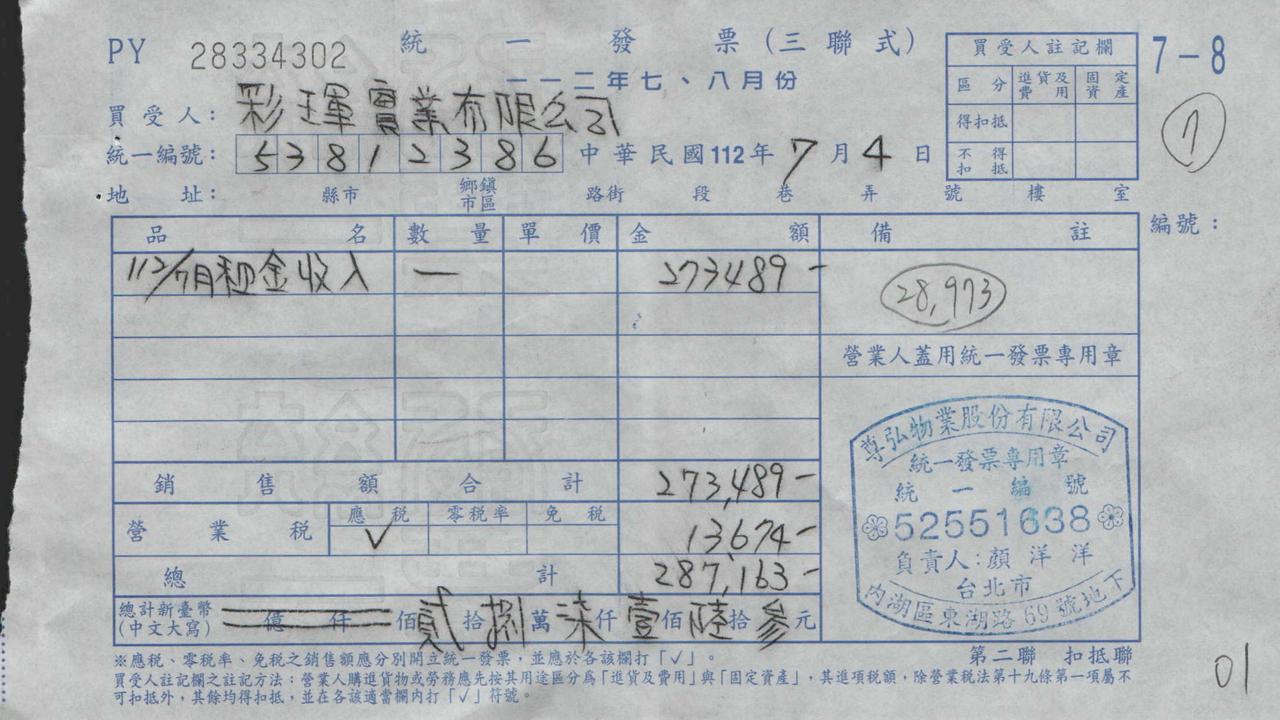 PY 28334302 統一發票(三聯式)
一一二年七、八月份
買受人: 彩琿實業有限公司
統一編號: 53812386 中華民國112年7月4日
地址: 縣市 鄉鎮市區 路街 段 巷 弄 號 樓 室
買受人註記欄
區分 進貨及費用 固定資產
得扣抵
不得扣抵
7-8
7
編號:
品名 數量 單價 金額 備註
112/7月租金收入 一 273489-
28,973
營業人蓋用統一發票專用章
銷售額合計 273,489-
營業稅 應稅 零稅率 免稅
√ 13,674-
總計 287,163-
總計新臺幣(中文大寫) 億 仟 佰 貳 拾 捌 萬 柒 仟 壹 佰 陸 拾 參 元
尊弘物業股份有限公司
統一發票專用章
統一編號
52551638
負責人:顏洋洋
台北市
內湖區東湖路69號地下
第二聯 扣抵聯
※應稅、零稅率、免稅之銷售額應分別開立統一發票,並應於各該欄打「√」。
買受人註記欄之註記方法:營業人購進貨物或勞務應先按其用途區分為「進貨及費用」與「固定資產」,其進項稅額,除營業稅法第十九條第一項屬不
可扣抵外,其餘均得扣抵,並在各該適當欄內打「√」符號。
01